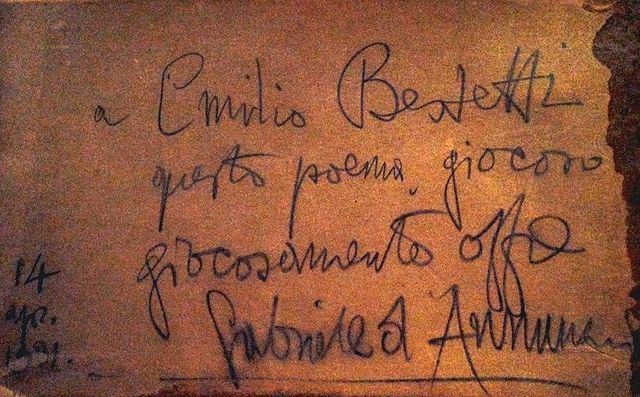 a Emilio Bestetti
questo poema giocoso
giocosamente offre
Gabriele d'Annunzio
14
apr.
1931.